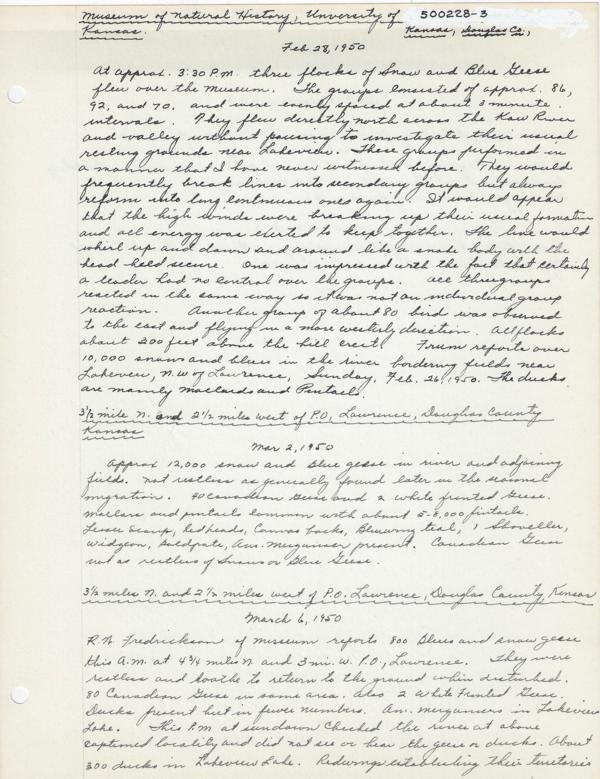 Museum of Natural History, Unversity of 500228-3
Kansas. Kansas, Douglas Co.,
Feb 28, 1950
At approx. 3:30 P.M. three flocks of Snow and Blue Geese
flew over the Museum. The groups consisted of approx. 86,
92, and 70, and were evenly spaced at about 3 minute
intervals. They flew directly north across the Kaw River
and valley without pausing to investigate their usual
resting grounds near Lakeview. These groups performed in
a manner that I have never witnessed before. They would
frequently break lines into secondary groups but always
reform into long continuous ones again. It would appear
that the high winds were breaking up their usual formation
and all energy was exerted to keep together. The line would
whirl up and down and around like a snake body with the
head held secure. One was impressed with the fact that certainly
a leader had no control over the groups. All three groups
reacted in the same way so it was not an individual group
reaction. Another group of about 80 bird was observed
to the east and flying in a more westerly direction. All flocks
about 200 feet above the hill crest. Frum reports over
10,000 snows and blues in the river bordering fields near
Lakeview, N.W of Lawrence, Sunday, Feb. 26, 1950. The ducks
are mainly mallards and Pintails.
3½ mile N. and 2½ miles west of P.O., Lawrence, Douglas County
Kansas
Mar 2, 1950
Approx 12,000 snow and blue geese in river and adjoining
fields. not restless as generally found later in the seasonal
migration. 40 Canadian Geese and 2 white fronted Geese.
Mallard and pintails common with about 5-8,000 pintails.
Lesser Scaup, Redheads, Canvas backs, Bluewing teal, 1 Shoveller,
Widgeon, Baldpate, Am. Merganser present. Canadian Geese
not as restless as Snows or Blue Geese.
3½ miles N. and 2½ miles west of P.O. Lawrence, Douglas County, Kansas
March 6, 1950
R.W. Fredrickson of museum reports 800 Blues and snow geese
this A.M. at 4¾ miles N and 3 mi. W. P.O., Lawrence. They were
restless and loathe to return to the ground when disturbed.
80 Canadian Geese in same area. Also 2 White Fronted Geese.
Ducks present but in fewer numbers. Am. mergansers in Lakeview
Lake. This P.M at sundown checked the river at above
captioned locality and did not see or hear the geese or ducks. About
300 ducks in Lakeview Lake. Redwings establishing their territories